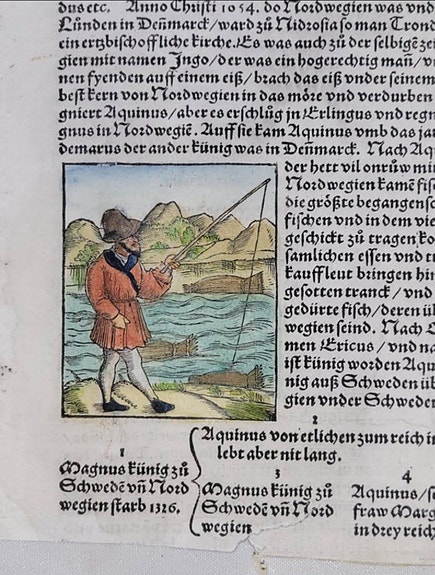 dus etc. Anno Christi 1054. do Nordwegien was vnd
Lünden in Deñmarck / ward zů Nidrosia so man Trond
ein ertzbischoffliche kirche. Es was auch zů der selbigē zei
gien mit namen Ingo / der was ein hogerechtig mañ / v
nen fyenden auff einem eiß / brach das eiß vnder seinem
best kern von Nordwegien in das möre vnd verdurben
gniert Aquinus / aber es erschlůg jn Erlingus vnd regn
gnus in Nordwegiē. Auff sie kam Aquinus vmb das jar
demarus der ander künig was in Deñmarck. Nach Aq
der hett vil onrůw mi
Nordwegien kamē fis
die größte begangensc
fischen vnd in dem vie
geschickt zů tragen ko
samlichen essen vnd t
kauffleut bringen hin
gesotten tranck / vnd
gedürte fisch / deren ü
wegien seind. Nach
men Ericus / vnd na
ist künig worden Aqu
nig auß Schweden üb
gien vnder Schweden
1
Magnus künig zů
Schwedē vñ Nord
wegien starb 1326.
2
Aquinus von etlichen zum reich
lebt aber nit lang.
3
Magnus künig zů
Schwedē vñ Nord
wegien
4
Aquinus /
fraw Marg
in drey reich